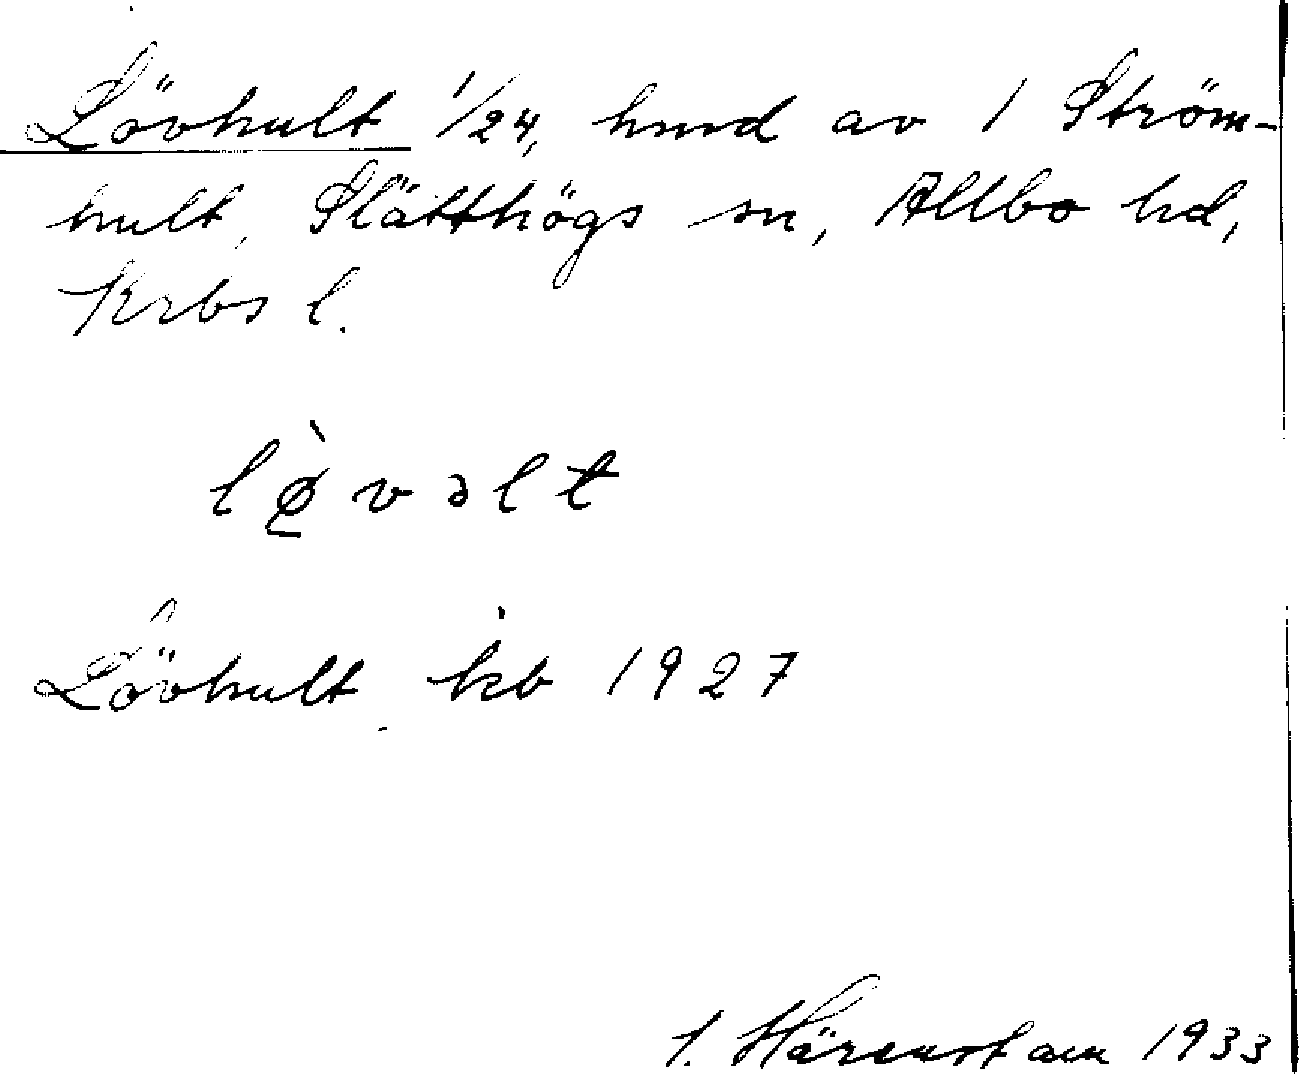 Lövhult 1/24, hmd av 1 Ström-
hult, Slätthögs sn, Allbo hd,
Krbs l.
lø̀vəlt
Lövhult kb 1927
Härenstam 1933